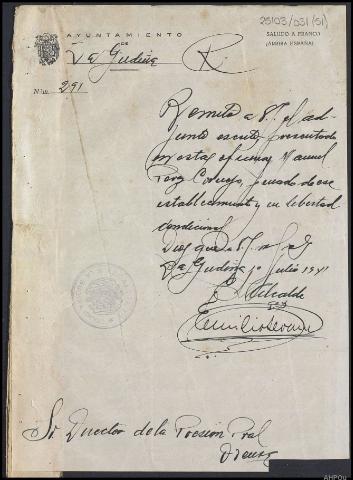 25103/031(51)
AYUNTAMIENTO
DE
La Gudiña
SALUDO A FRANCO
¡ARRIBA ESPAÑA!
Núm. 291
Remito a V. el ad-
junto escrito presentado
en estas oficinas Manuel
Perez penado de ese
establecimiento y en libertad
condicional
Dios que a V. m.
La Gudiña 1º Julio 1941
El Alcalde
Sr. Director de la Prisión Pral
Orense
AHPOu